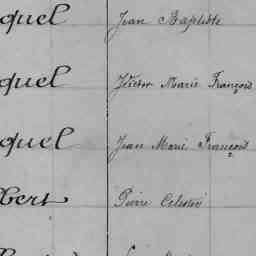 quel Jean Baptiste
quel Victor Marie François
quel Jean Marie François
bert Pierre Celestin